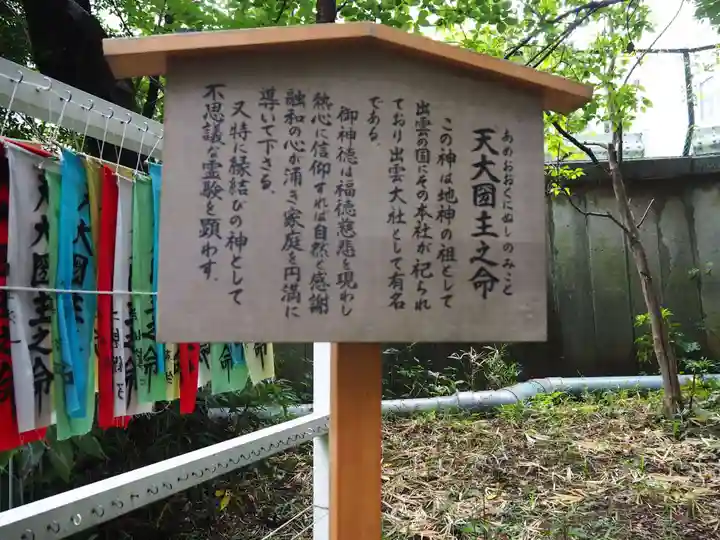 あめのおおくにぬしのみこと
天大國主之命
この神は地神の祖として
出雲の国にその本社が祀られ
ており出雲大社として有名
である。
御神徳は福徳慈悲を現わし
熱心に信仰すれば自然と感謝
融和の心が涌き家庭を円満に
導いて下さる。
又特に縁結びの神として
不思議な霊験を顕わす。
天大國主之命
天大國主之命